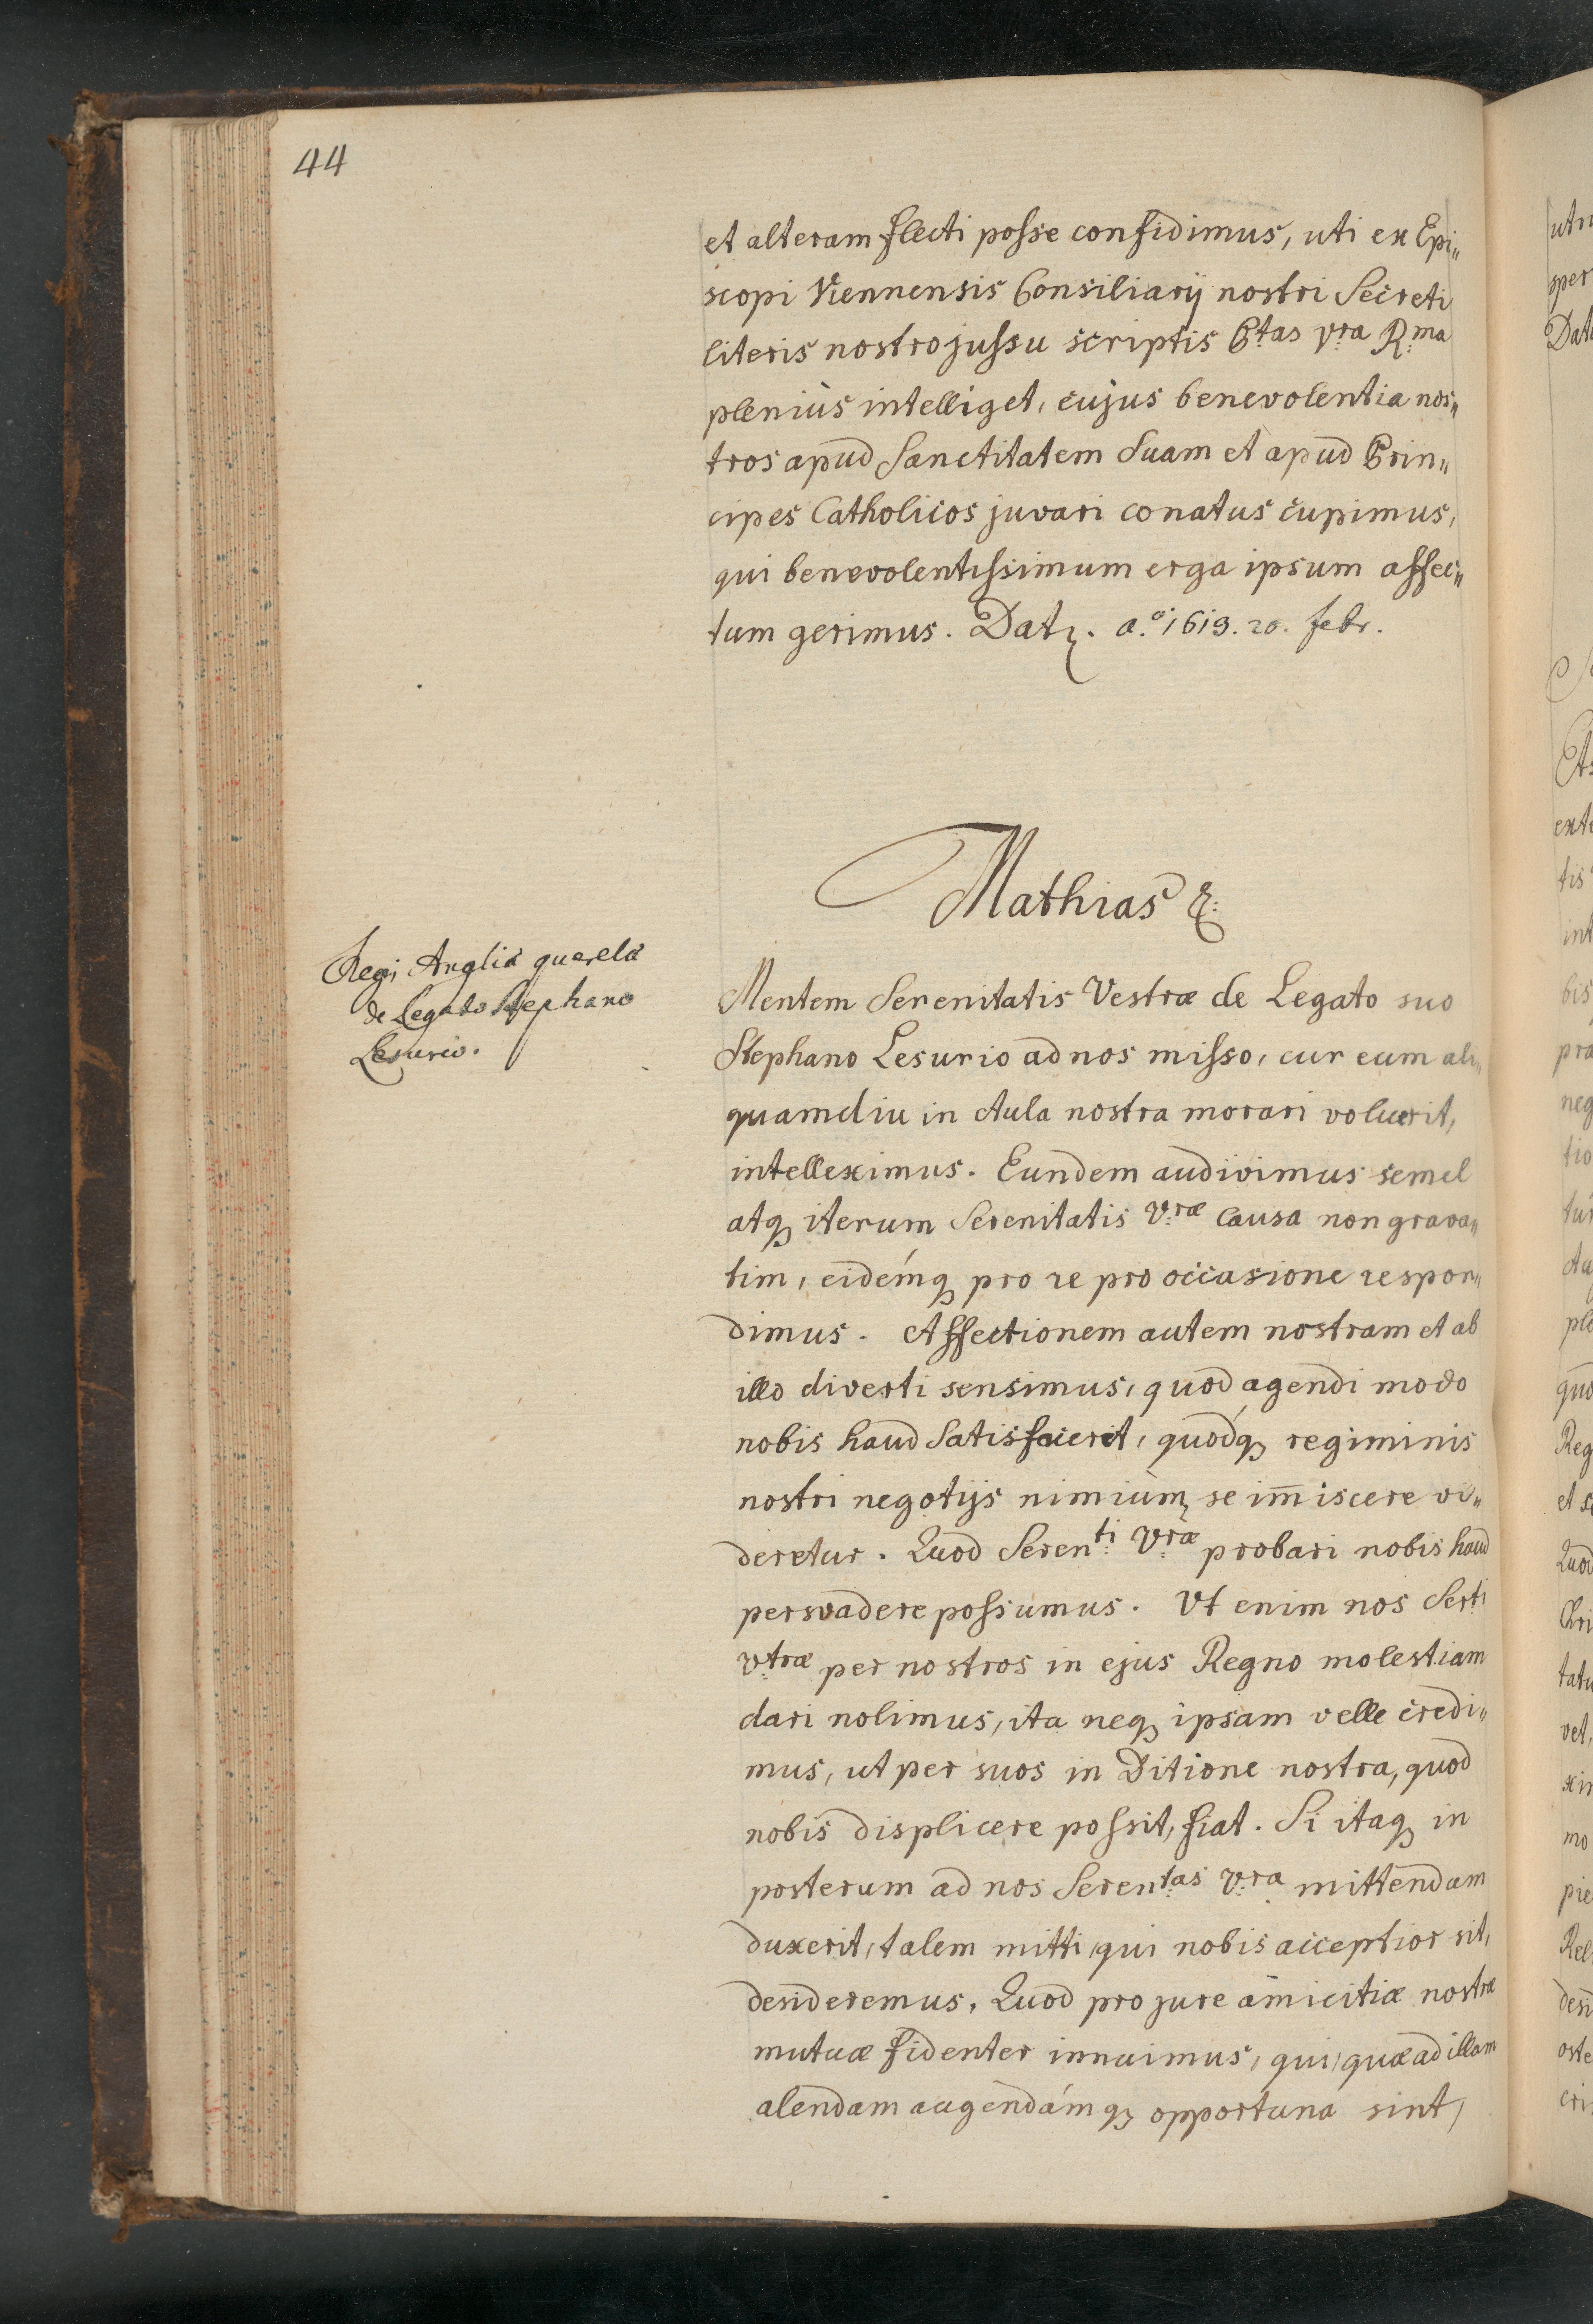 44
et alteram flecti posse confidimus, uti ex Epi„
scopi Viennensis Consiliarij nostri Secreti
literis nostro jussu scriptis P:tas v:ra R:ma
pleniùs intelliget, cujus benevolentia nos„
tros apud Sanctitatem Suam et apud Prin„
cipes Catholicos juvari conatus cupimus,
qui benevolentissimum erga ipsum affec„
tum gerimus. Datz. a.º 1613. 20. febr.
Mathias &:
Regi Angliæ querela
de Legato Stephano
Lesurio.
Mentem Serenitatis Vestræ de Legato suo
Stephano Lesurio ad nos misso, cur eum ali„
quamdiu in Aula nostra morari voluerit,
intelleximus. Eundem audivimus semel
atq3 iterum Serenitatis v:ræ causa non grava„
tim, eidémq3 pro re pro occasione respon„
dimus. Affectionem autem nostram et ab
illo diverti sensimus, quod agendi modo
nobis haud satisfacerit, quódq3 regiminis
nostri negotijs nimiùm, se im̄iscere vi„
deretur. Quod Seren:ti v:ræ probari nobis haud
persvadere possumus. Vt enim nos Ser:ti
v:træ per nostros in ejus Regno molestiam
dari nolimus, ita neq3 ipsam velle credi„
mus, ut per suos in Ditione nostra, quod
nobis displicere possit, fiat. Si itaq3 in
posterum ad nos Seren:tas v:ra mittendam
duxerit, talem mitti, qui nobis acceptior sit,
desideremus. Quod pro jure amicitiæ nostræ
mutuæ fidenter innuimus, qui, quæ ad illam
alendam augendámq3 opportuna sint,